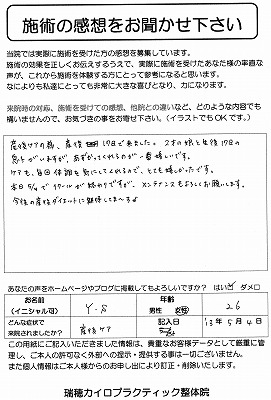 施術の感想をお聞かせ下さい
当院では実際に施術を受けた方の感想を募集しています。
施術の効果を正しくお伝えするうえで、実際に施術を受けたあなた様の率直な
声が、これから施術を体験する方にとって参考になると思います。
なによりも私達にとっても非常に大きな喜びとなり、力になります。
来院時の対応、施術を受けての感想、他院との違いなど、どのような内容でも
構いませんので、お気づきの事をお寄せ下さい。(イラストでもOKです。)
産後ケアの為、産後 17日で来ました。2才の娘と生後17日の
息子がいますが、あずかってくれるのが一番嬉しいです。
ケアも、毎回体調を気にしてくれるので、とても嬉しかったです。
本日5/4で1クールが終わりですが、メンテナンスもよろしくお願いします。
今後の産後ダイエットに期待してまーすよ
あなたの声をホームページやブログに掲載してもよろしいですか? はい ダメロ
お名前
(イニシャル可)
Y.S
年齢
男性 女性
26
どんな症状で
来院されましたか?
産後ケア
記入日
'13年5月4日
この用紙にご記入いただきました情報は、貴重なお客様データとして厳重に管
理し、ご本人の許可なく外部への提示・提供する事は一切ございません。
また個人情報はご本人様からのお申し出により訂正・削除いたします。
瑞穂カイロプラクティック整体院